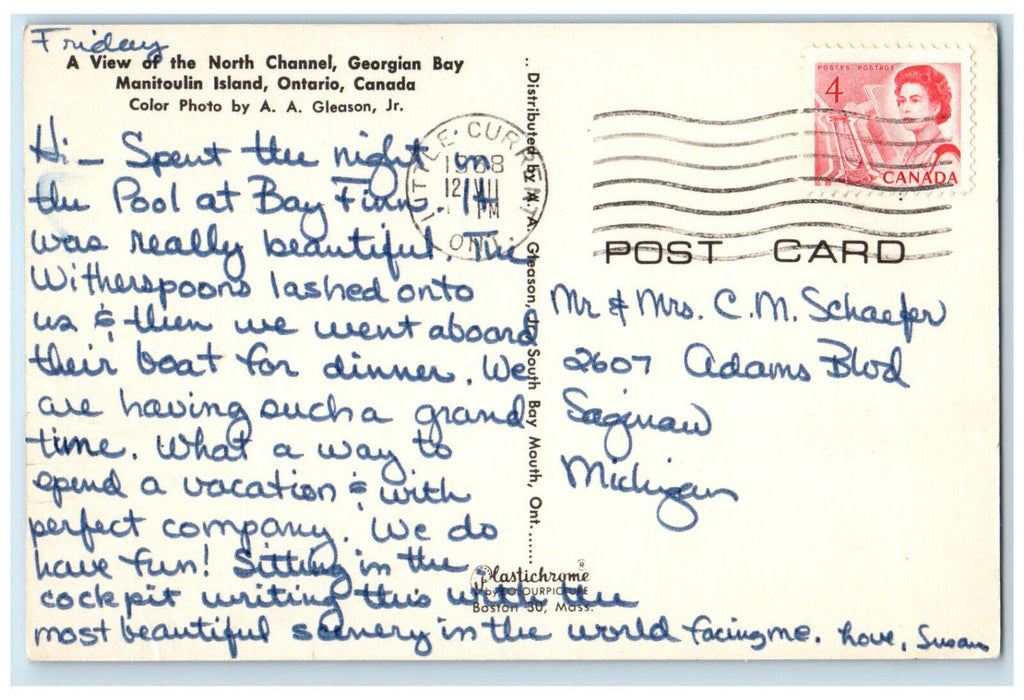 Friday
A View of the North Channel, Georgian Bay
Manitoulin Island, Ontario, Canada
Color Photo by A. A. Gleason, Jr.
Hi - Spent the night in
the Pool at Bay Finn. It
was really beautiful. The
Witherspoons lashed onto
us & then we went aboard
their boat for dinner. We
are having such a grand
time. What a way to
spend a vacation & with
perfect company. We do
have fun! Sitting in the
cockpit writing this with the
most beautiful scenery in the world facing me. Love, Susan
Distributed by A. A. Gleason, Jr. South Bay Mouth, Ont.
Plastichrome ®
by COLOURPICTURE
Boston 30, Mass.
LITTLE CURRENT
1968
PM
ONT.
POSTES POSTAGE
4
CANADA
POST CARD
Mr & Mrs. C. M. Schaefer
2607 Adams Blvd
Saginaw
Michigan